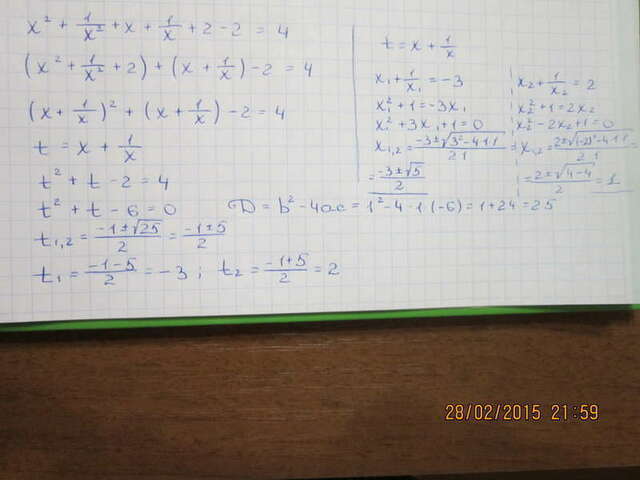 x² + 1/x² + x + 1/x + 2 - 2 = 4
(x² + 1/x² + 2) + (x + 1/x) - 2 = 4
(x + 1/x)² + (x + 1/x) - 2 = 4
t = x + 1/x
t² + t - 2 = 4
t² + t - 6 = 0 D = b² - 4ac = 1² - 4·1·(-6) = 1 + 24 = 25
t₁,₂ = (-1 ± √25)/2 = (-1 ± 5)/2
t₁ = (-1 - 5)/2 = -3 ; t₂ = (-1 + 5)/2 = 2
t = x + 1/x
x₁ + 1/x₁ = -3
x₁² + 1 = -3x₁
x₁² + 3x₁ + 1 = 0
x₁,₂ = (-3 ± √(3² - 4·1·1))/(2·1) =
= (-3 ± √5)/2
x₂ + 1/x₂ = 2
x₂² + 1 = 2x₂
x₂² - 2x₂ + 1 = 0
x₁,₂ = (2 ± √((-2)² - 4·1·1))/(2·1) =
= (2 ± √(4 - 4))/2 = 1
28/02/2015 21:59